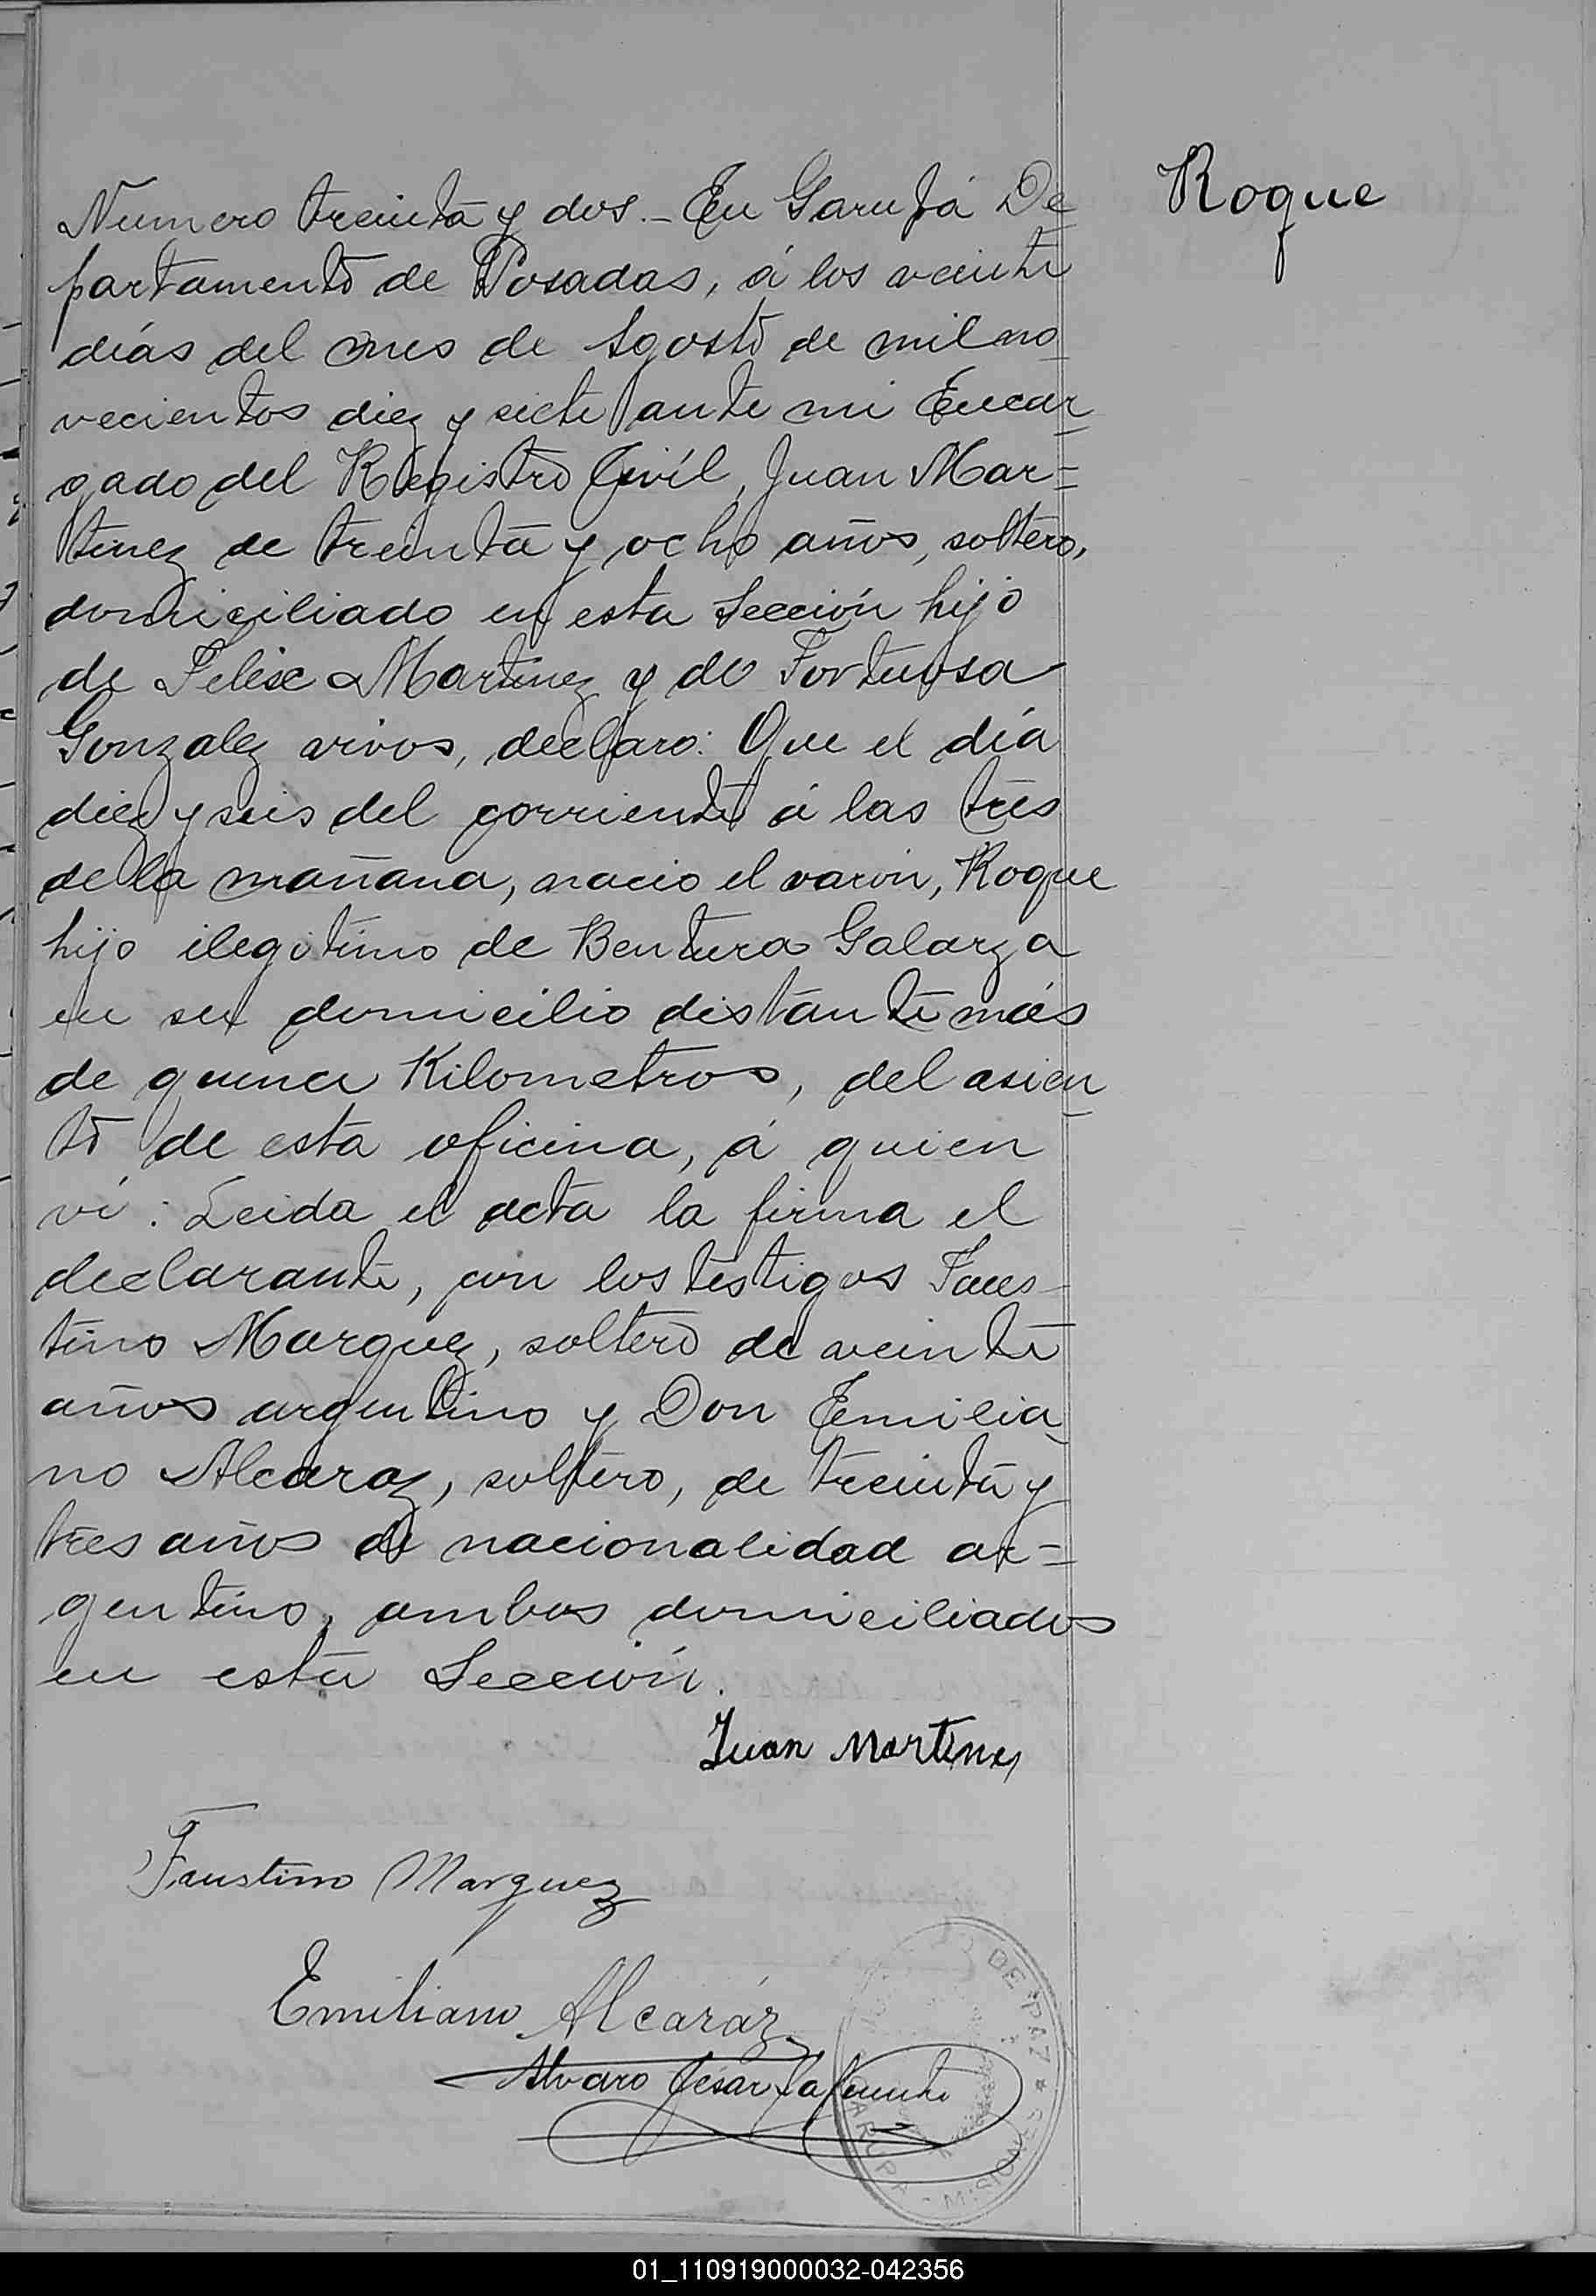 Roque
Numero treinta y dos.- En Garupá De
partamento de Posadas, á los veinte
días del mes de Agosto de mil no
vecientos diez y siete ante mi Encar
gado del Registro Civíl, Juan Mar=
tinez de treinta y ocho años, soltero,
domiciliado en esta Sección hijo
de Felixe Martinez y de Fortuosa
Gonzalez vivos, declaro: Que el día
diez y seis del corriente á las tres
de la mañana, nacio el varón, Roque
hijo ilegitimo de Bentura Galarza
en su domicilio distante más
de quince Kilometros, del asien
to de esta oficina, á quien
ví: Leida el acta la firma el
declarante, con los testigos Faus-
tino Marquez, soltero de veinte
años argentino y Don Emilia
no Alcaraz, soltero, de treinta y
tres años de nacionalidad ar=
gentino, ambos domiciliados
en esta Sección.
Juan Martinez
Faustino Marquez
Emiliano Alcaráz
Alvaro César Lafuente
DE PAZ * MISIONES - GARUPA
01_110919000032-042356